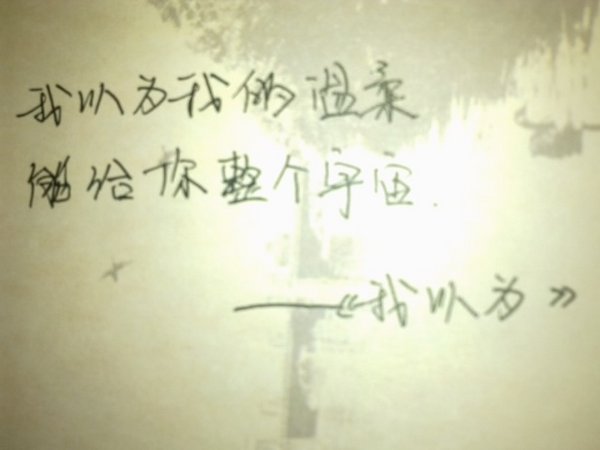 我以为我的温柔
能给你整个宇宙.
——《我以为》